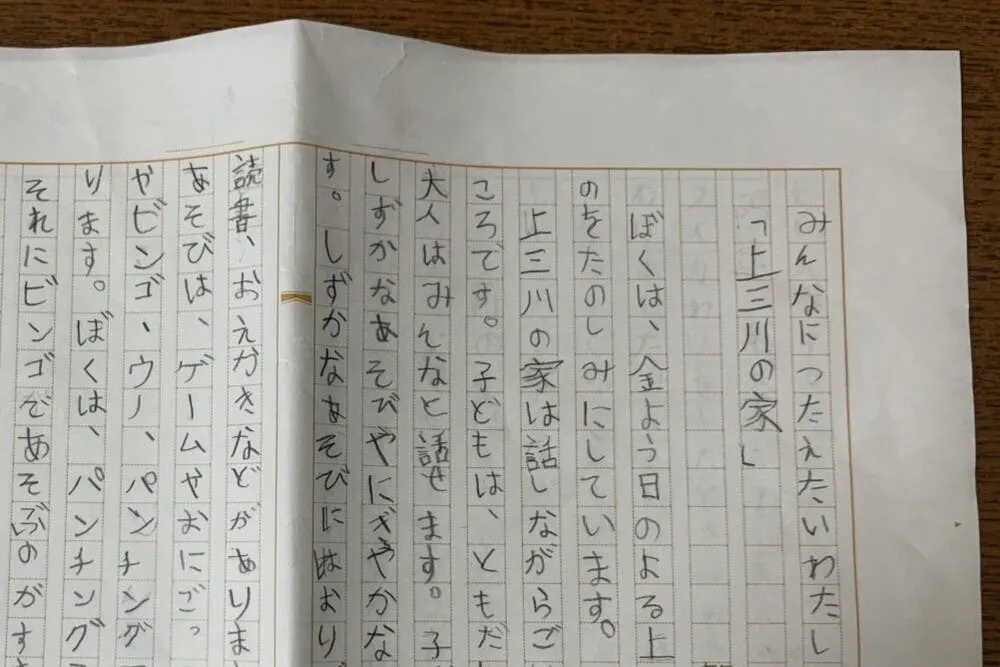 みんなにつたえたいわたし
「上三川の家」
ぼくは、金よう日のよる上
のをたのしみにしています。
上三川の家は話しながらごは
ころです。子どもは、ともだ
大人はみんなと話せます。子
しずかなあそびやにぎやかな
す。しずかなあそびにはおり
読書、おえかきなどがありま
あそびは、ゲームやおにごっ
やビンゴ、ウノ、パンチング
ります。ぼくは、パンチング
それにビンゴであそぶのがす